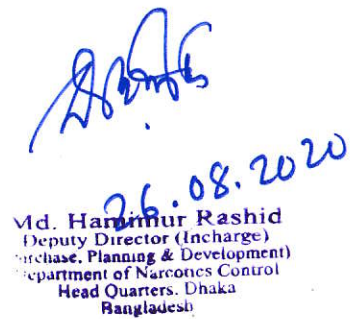 26.08.2020
Md. Hamimur Rashid
Deputy Director (Incharge)
Planning & Development)
epartment of Narcotics Control
Head Quarters. Dhaka
Bangladesh